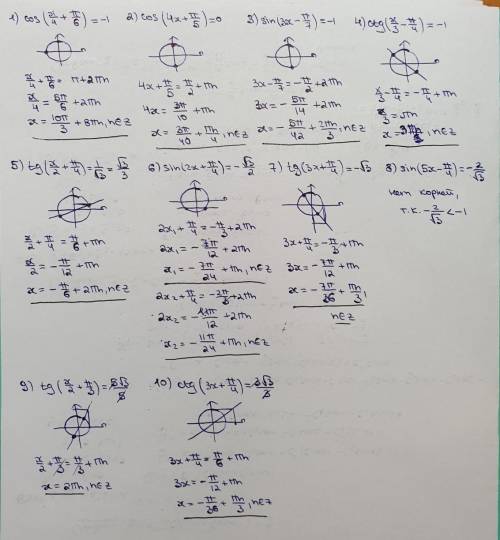 1) cos(x/4 + π/6) = -1
x/4 + π/6 = π + 2πn
x/4 = 5π/6 + 2πn
x = 10π/3 + 8πn, n∈z
2) cos(4x + π/5) = 0
4x + π/5 = π/2 + πn
4x = 3π/10 + πn
x = 3π/40 + πn/4, n∈z
3) sin(3x - π/7) = -1
3x - π/7 = -π/2 + 2πn
3x = -5π/14 + 2πn
x = -5π/42 + 2πn/3, n∈z
4) ctg(x/3 - π/4) = -1
x/3 - π/4 = -π/4 + πn
x/3 = πn
x = 3πn, n∈z
5) tg(x/2 + π/4) = 1/√3 = √3/3
x/2 + π/4 = π/6 + πn
x/2 = -π/12 + πn
x = -π/6 + 2πn, n∈z
6) sin(2x + π/4) = -√3/2
2x₁ + π/4 = -π/3 + 2πn
2x₁ = -7π/12 + 2πn
x₁ = -7π/24 + πn, n∈z
2x₂ + π/4 = -2π/3 + 2πn
2x₂ = -11π/12 + 2πn
x₂ = -11π/24 + πn, n∈z
7) tg(3x + π/4) = -√3
3x + π/4 = -π/3 + πn
3x = -7π/12 + πn
x = -7π/36 + πn/3,
n∈z
8) sin(5x - π/4) = -2/√3
нет корней,
т.к. -2/√3 < -1
9) tg(x/2 + π/3) = 3√3/3
x/2 + π/3 = π/3 + πn
x = 2πn, n∈z
10) ctg(3x + π/4) = 3√3/3
3x + π/4 = π/6 + πn
3x = -π/12 + πn
x = -π/36 + πn/3, n∈z